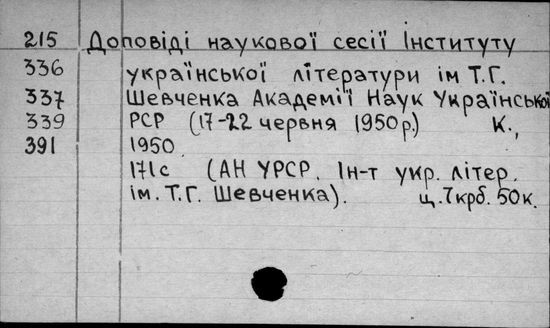 215 Доповіді наукової сесії Інституту
336 української літератури ім Т.Г.
337 Шевченка Академії Наук Української
339 РСР (17-22 червня 1950р.) К.,
391 1950
171с (АН УРСР. Ін-т укр. літер.
ім. Т.Г. Шевченка). ц. 7крб. 50к.